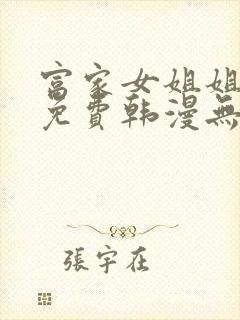 富家女姐姐
免費韩漫無
張宇在